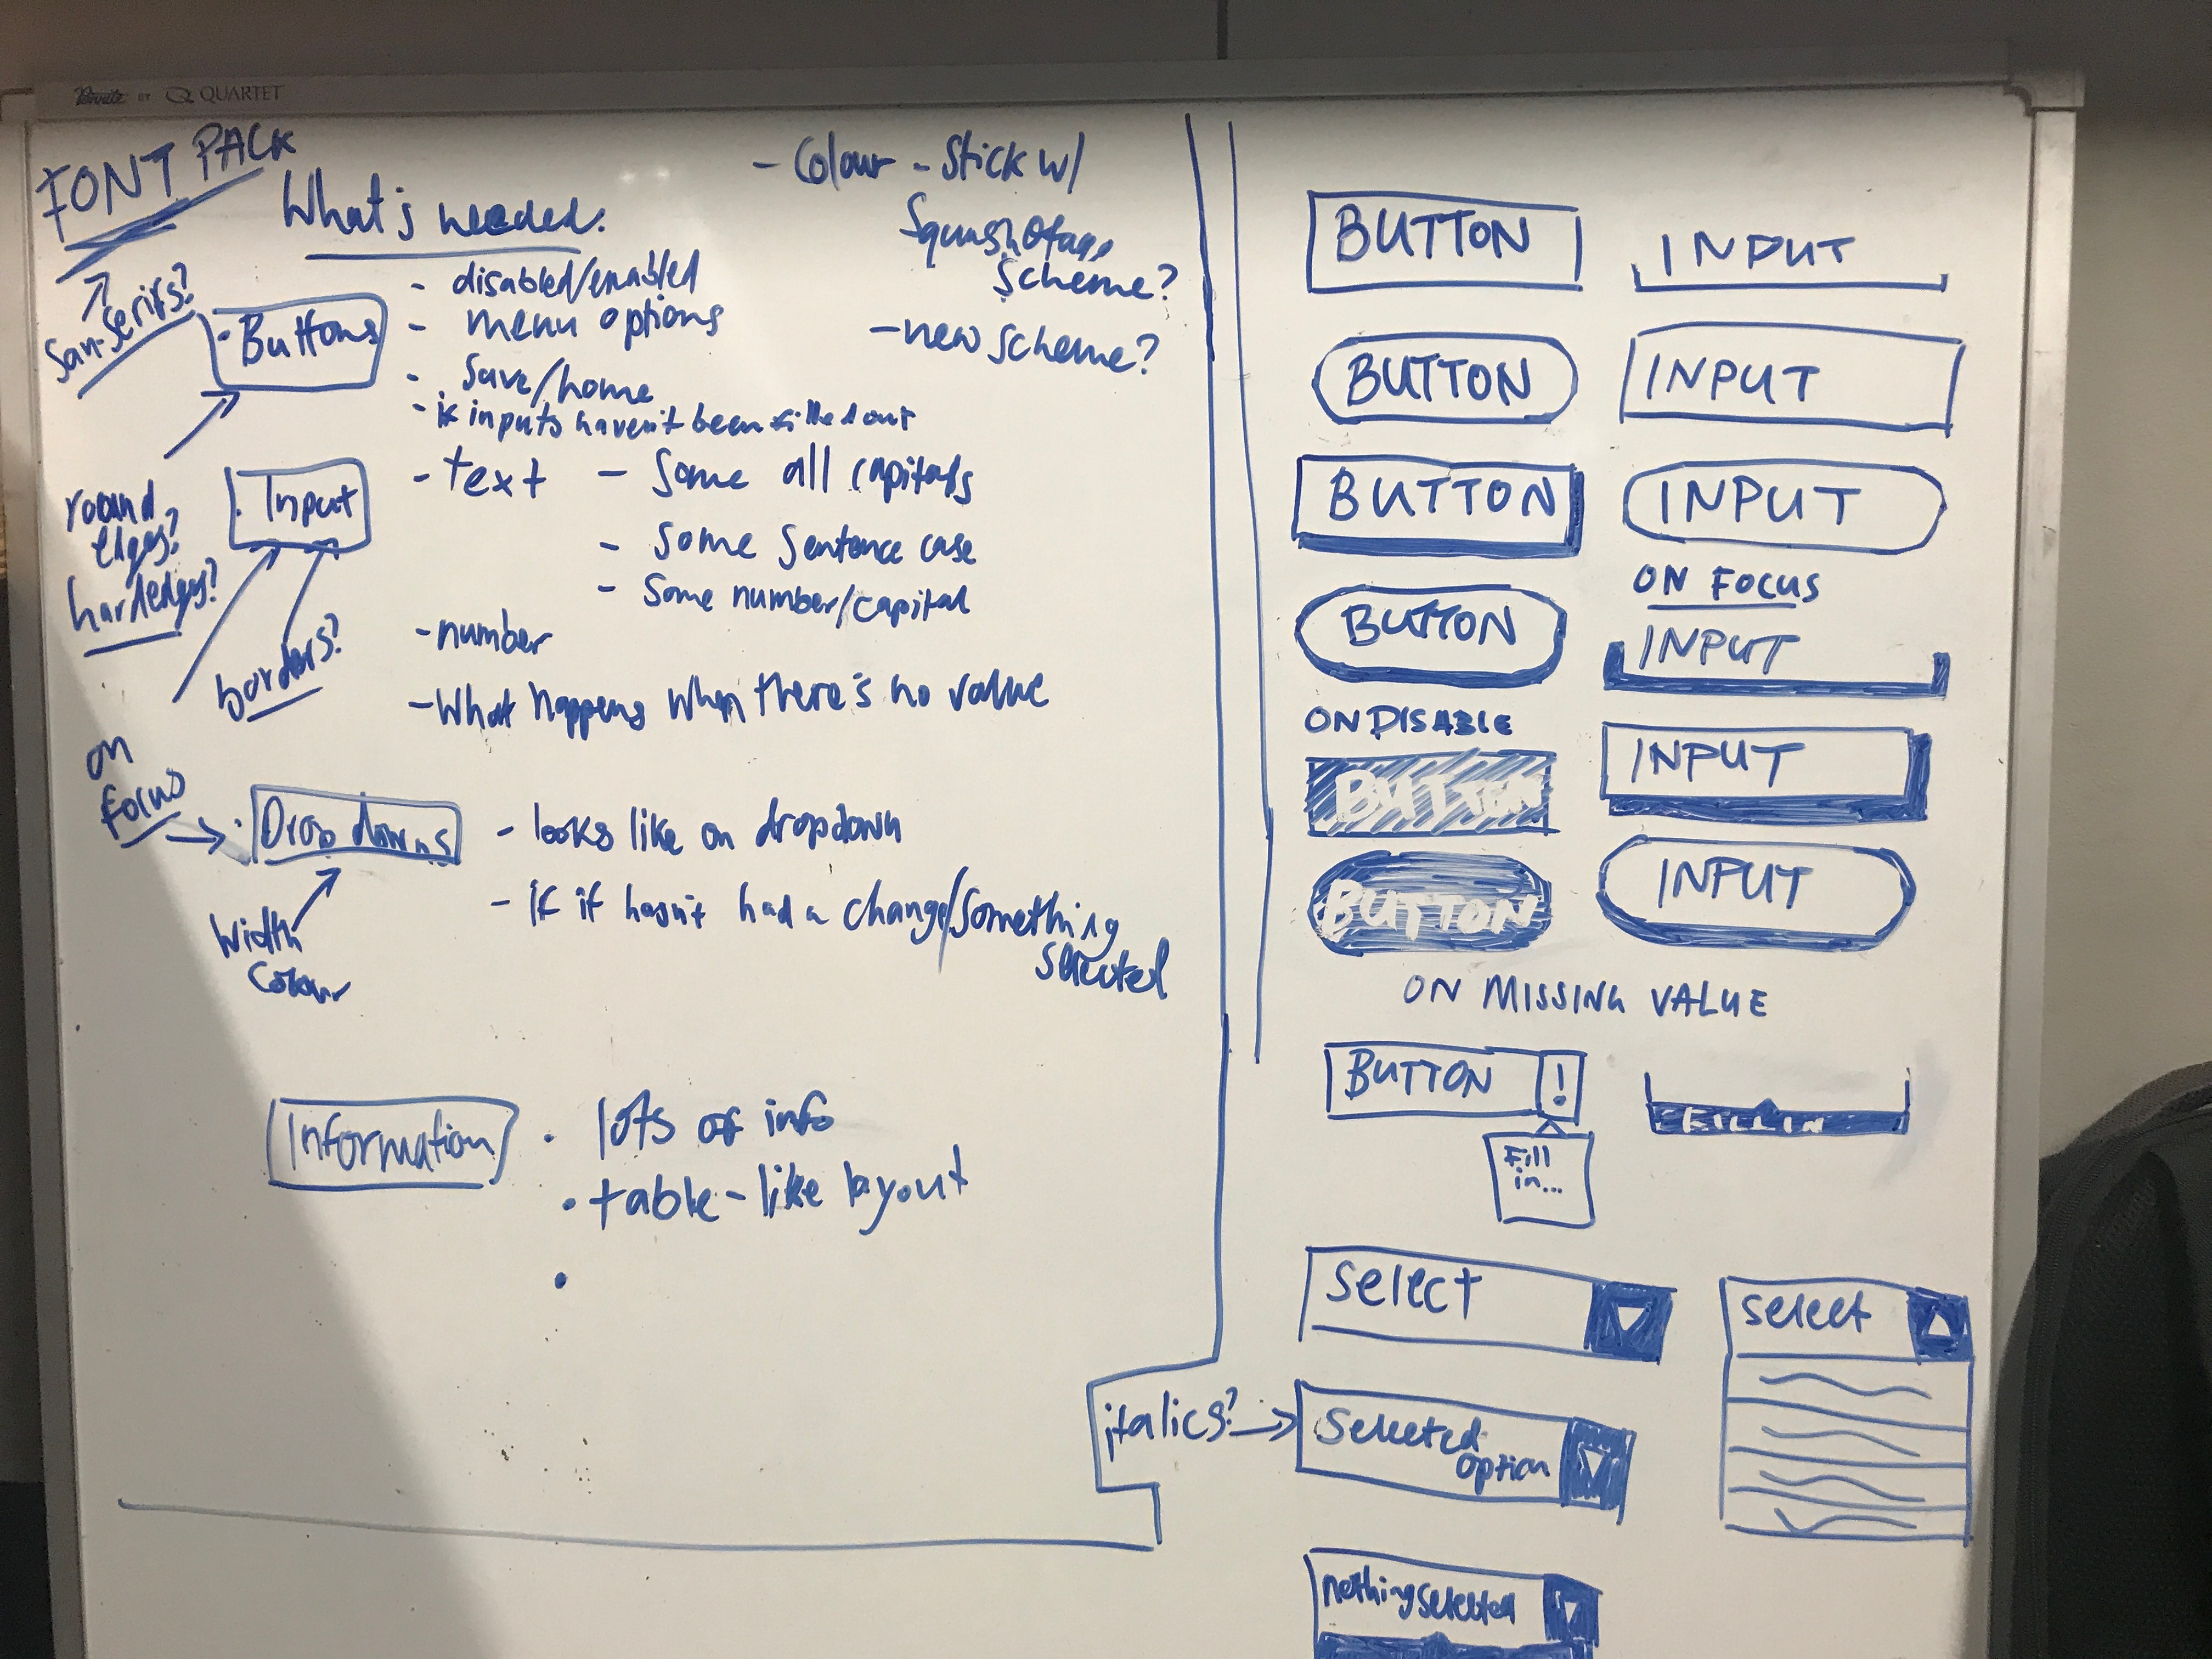 BY QUARTET
FONT PACK
What's needed:
- Colour - Stick w/
scheme?
- new scheme?
San-Serifs?
· Buttons
- disabled/enabled
- menu options
- Save/home
- if inputs haven't been filled out
round
edges?
hard edges?
· Input
borders?
- text - Some all capitals
- Some Sentence case
- Some number/capital
- number
- What happens when there's no value
on
focus
· Drop downs
Width
Colour
- looks like on dropdown
- if it hasn't had a change/something
selected
Information
· lots of info
· table-like layout
·
BUTTON
INPUT
BUTTON
INPUT
BUTTON
INPUT
BUTTON
ON FOCUS
INPUT
ON DISABLE
BUTTON
INPUT
BUTTON
INPUT
ON MISSING VALUE
BUTTON !
Fill
in...
FILL IN
Select
Select
italics?
Selected
option
nothing selected